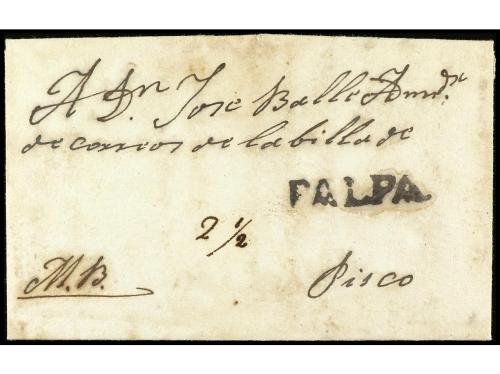 A Dn Jose Balle Amdor
de correos de la billa de
PALPA
2 1/2
M.B.
Pisco